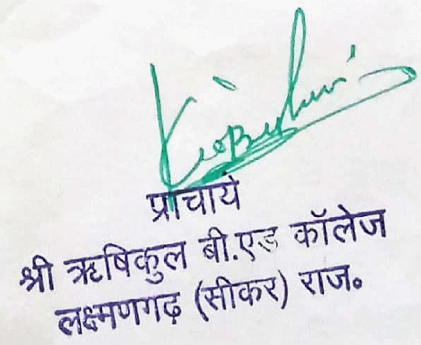 प्राचार्य
श्री ऋषिकुल बी.एड कॉलेज
लक्ष्मणगढ़ (सीकर) राज॰